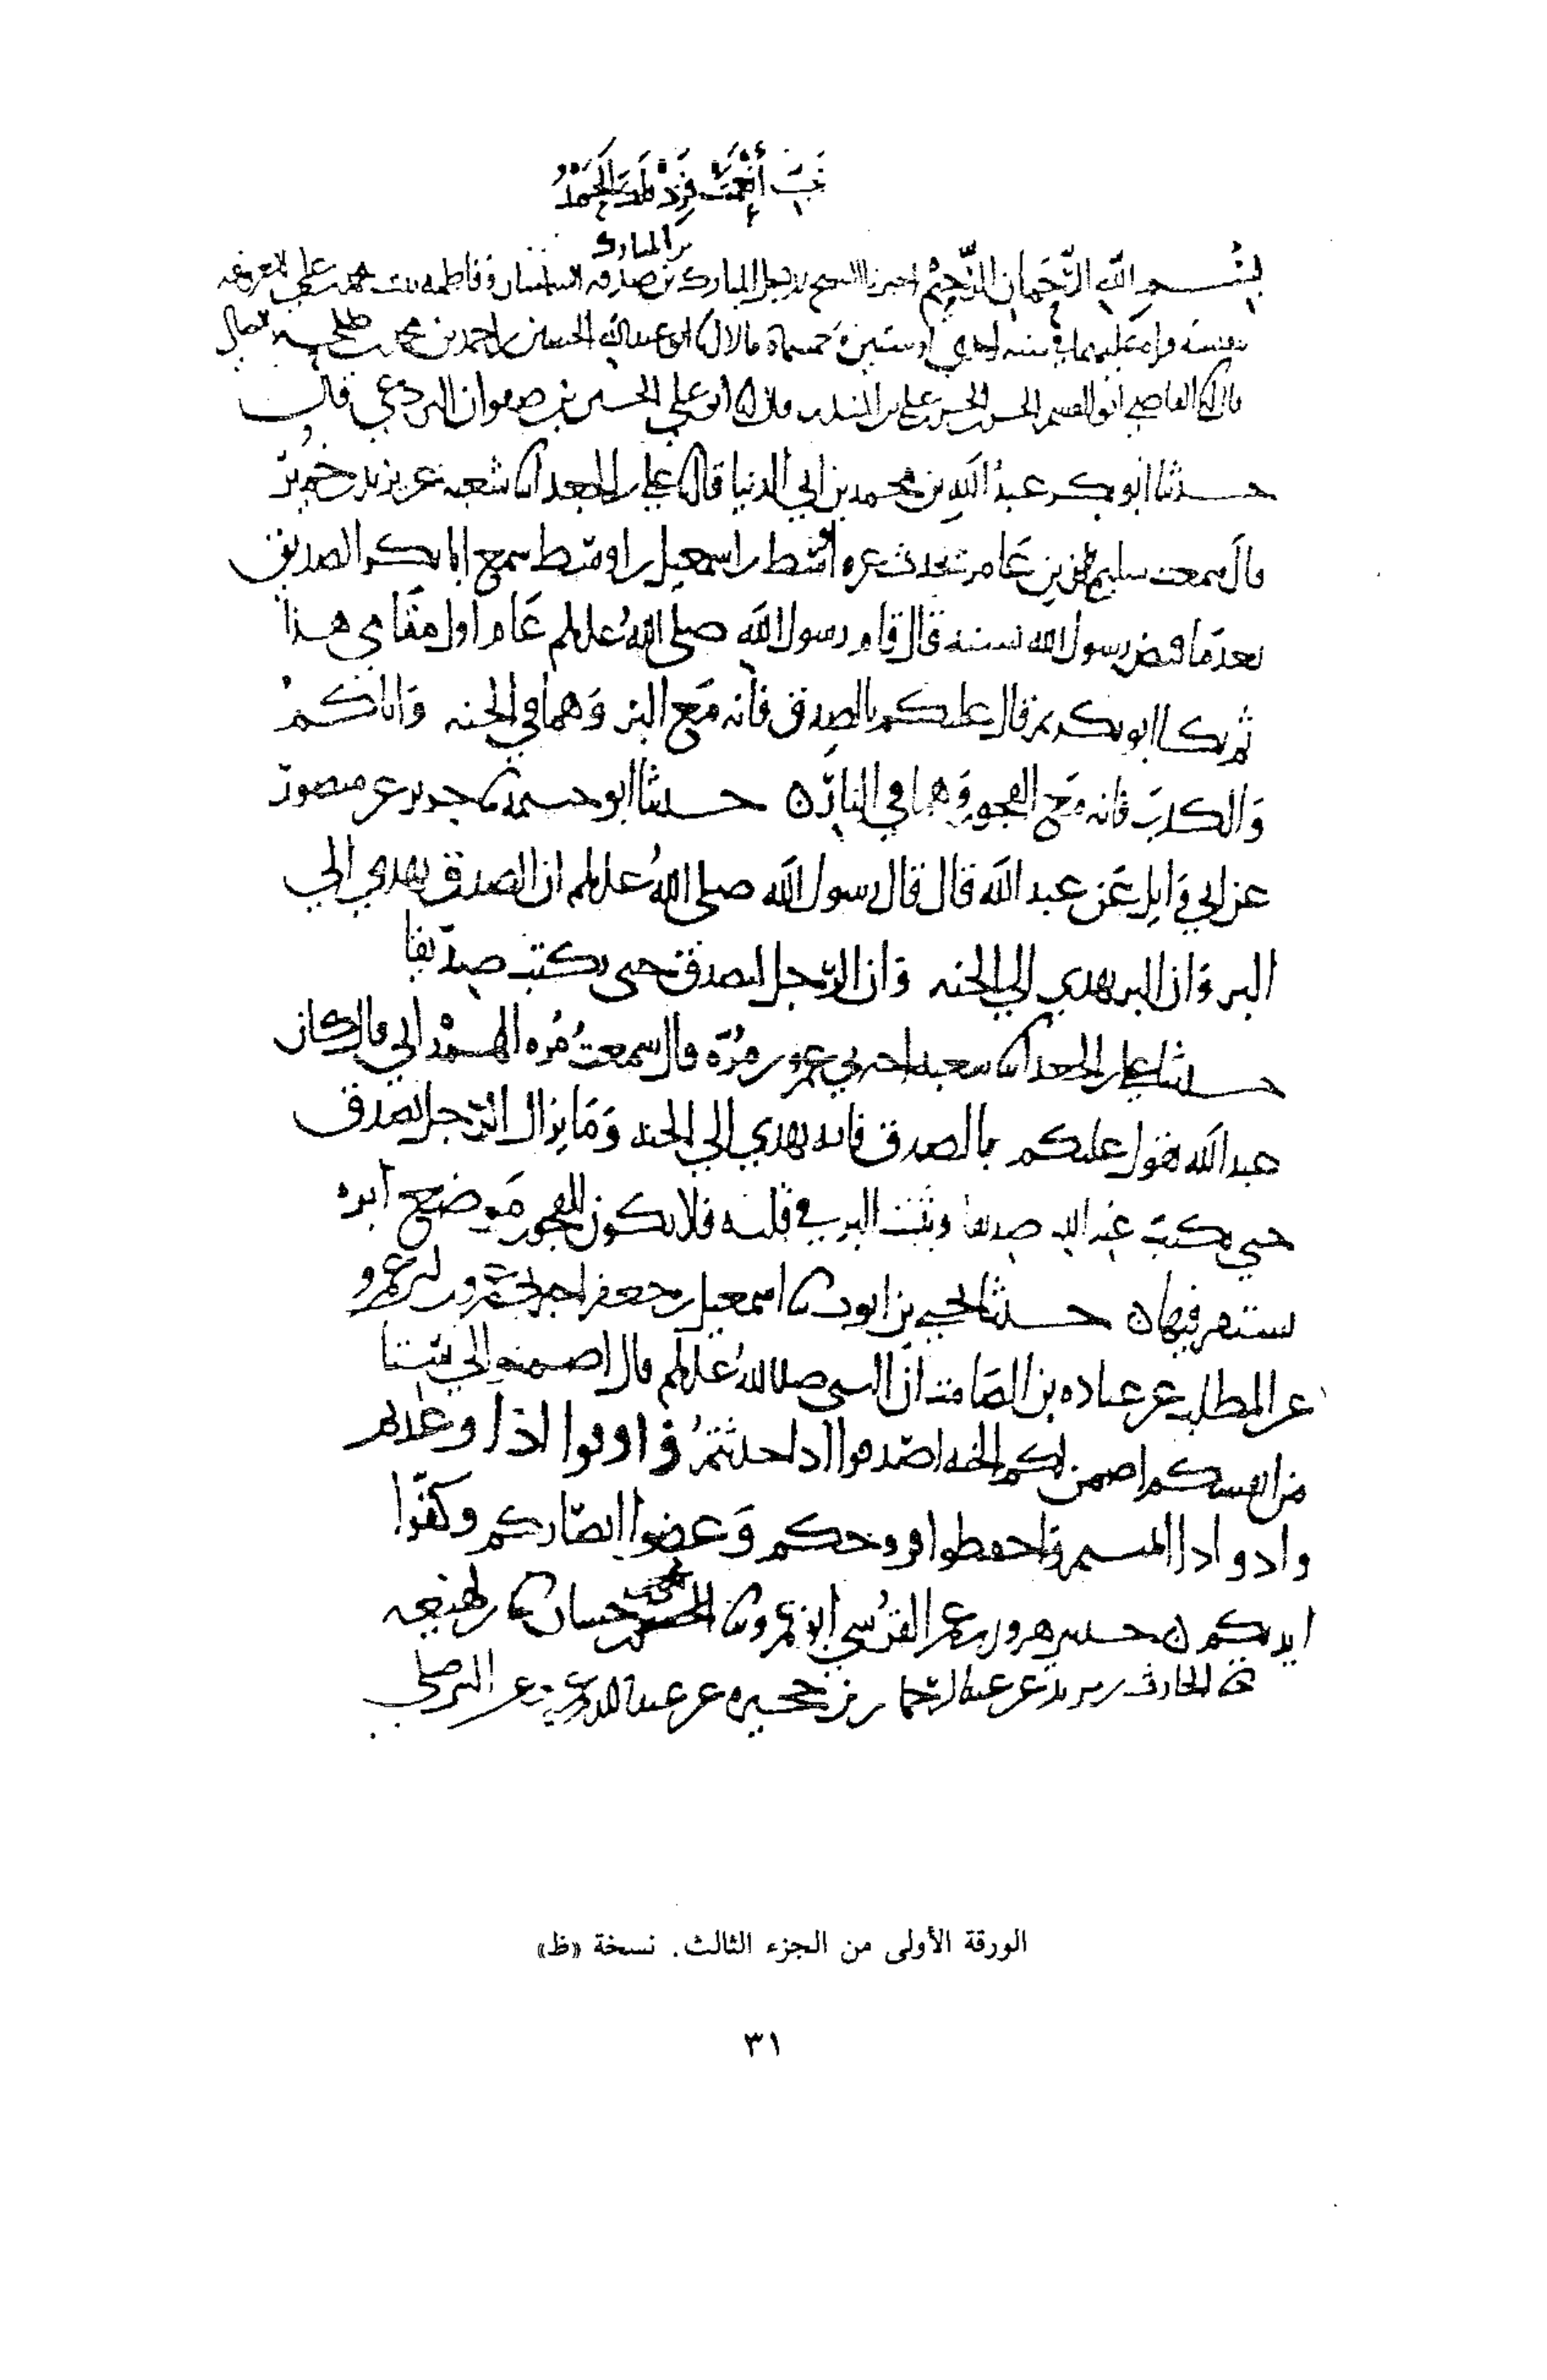 رب أنعمت فزد فلك الحمد
بن المبارك
بسم الله الرحمان الرحيم اخبرنا المبارك بن صدقه وفاطمه بنت محمد بن علي المعروفه
قراه عليهما في سنه احدي وستين وخمسماه قالا ابو عبد الله الحسين بن احمد بن محمد بن طلحه النعالي
قال القاضي ابو القسم الحسن بن الحسن بن علي بن المنذر قال ابو علي الحسين بن صفوان البردعي قال
حدثنا ابو بكر عبد الله بن محمد بن ابي الدنيا قال علي بن الجعد انا شعبه عن يزيد بن خمير
قال سمعت سليم بن عامر يحدث عن اوسط بن اسمعيل بن اوسط سمع ابا بكر الصديق
بعدما قبض رسول الله بسنه قال قام رسول الله صلى الله عليه وسلم عام اول مقامي هذا
ثم بكا ابو بكر ثم قال عليكم بالصدق فانه مع البر وهما في الجنه واياكم
والكذب فانه مع الفجور وهما في النار ن حدثنا ابو خيثمه نا جرير عن منصور
عن ابي وايل عن عبد الله قال قال رسول الله صلى الله عليه وسلم ان الصدق يهدي الي
البر وان البر يهدي الي الجنه وان الرجل ليصدق حتى يكتب صديقا
حدثنا علي بن الجعد انا شعبه اخبرني عمرو بن مره قال سمعت مره الهمداني قال كان
عبد الله يقول عليكم بالصدق فانه يهدي الي الجنه وما يزال الرجل يصدق
حتي يكتب عند الله صديقا ويثبت البر في قلبه فلا يكون للفجور موضع ابره
يستقر فيها ن حدثنا يحيي بن ايوب نا اسمعيل بن جعفر اخبرني عمرو بن ابي عمرو
عن المطلب عن عباده بن الصامت ان النبي صلى الله عليه وسلم قال اضمنوا لي ستا
من انفسكم اضمن لكم الجنه اصدقوا اذا حدثتم واوفوا اذا وعدتم
وادوا اذا ايتمنتم واحفظوا فروجكم وغضوا ابصاركم وكفوا
ايديكم ن حدثني هرون بن عمر القرشي ابو عمرو نا محمد بن حسان نا بن لهيعه
نا الحارث بن يزيد عن عبد الرحمان بن حجيره عن عبد الله بن عمرو عن النبي صلي
الورقة الأولى من الجزء الثالث. نسخة «ظ»
٣١